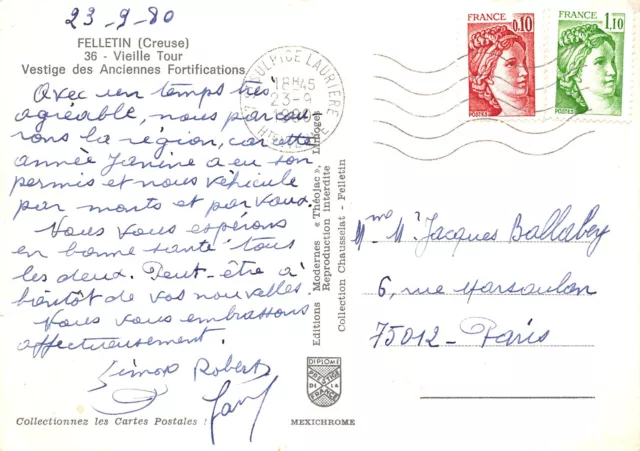 23-9-80
FELLETIN (Creuse)
36 - Vieille Tour
Vestige des Anciennes Fortifications
Avec un temps très
agréable, nous parcou
rons la région, car cette
année Janine a eu son
permis et nous véhicule
par monts et par vaux.
Nous vous espérons
en bonne santé tous
les deux. Peut-être à
bientôt de vos nouvelles
Nous vous embrassons
affectueusement.
Simone Robert
Collectionnez les Cartes Postales !
ULPICE LAURIERE
18H45
23-9
1980
Editions Modernes « Théojac », Limoges
Reproduction interdite
Collection Chausselat - Felletin
DIPLOME
PRESTIGE
DE LA
FRANCE
MEXICHROME
FRANCE
0,10
POSTES
FRANCE
1,10
POSTES
Mme Mr Jacques Ballabey
6, rue Marsoulan
75012 - Paris